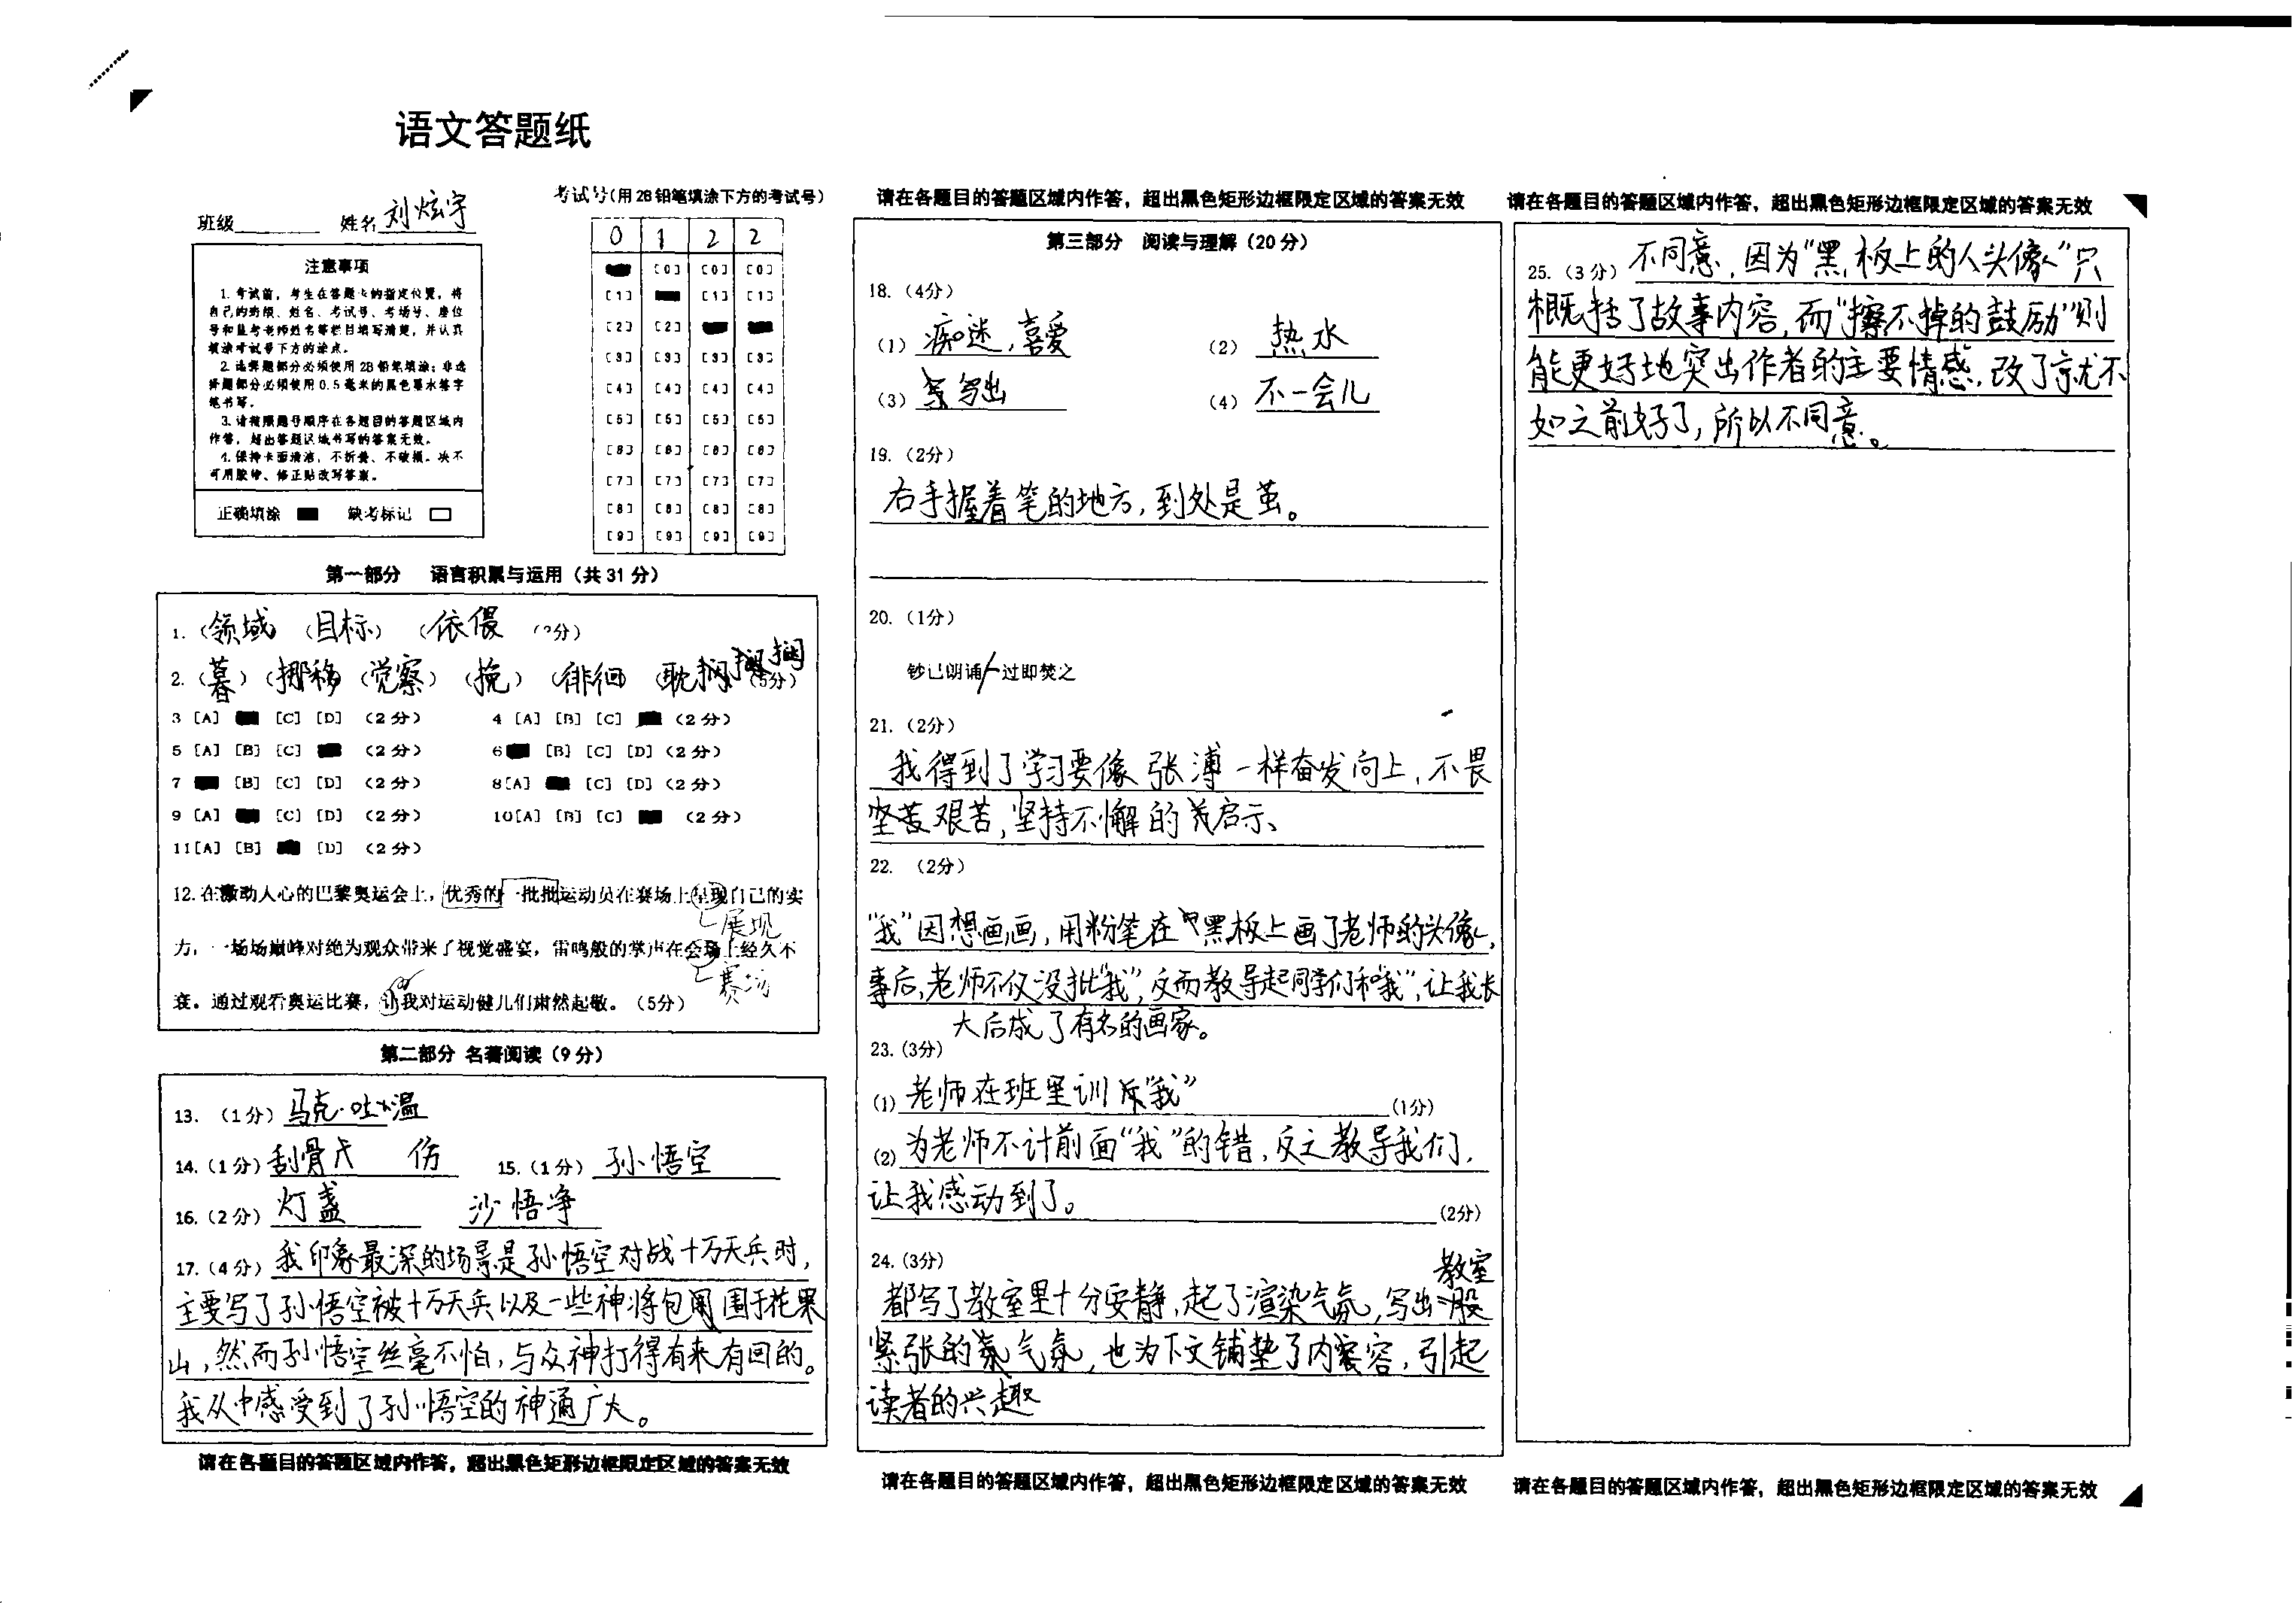 语文答题纸
班级 姓名 刘炫宇
考试号(用2B铅笔填涂下方的考试号)
0 1 2 2
注意事项
1.考试前,考生在答题卡的指定位置,将
自己的班级、姓名、考试号、考场号、座位
号和监考老师姓名等栏目填写清楚,并认真
填涂考试号下方的涂点。
2.选择题部分必须使用2B铅笔填涂;非选
择题部分必须使用0.5毫米的黑色墨水签字
笔书写。
3.请按照题号顺序在各题目的答题区域内
作答,超出答题区域书写的答案无效。
4.保持卡面清洁,不折叠、不破损。决不
可用胶带、修正贴改写答案。
正确填涂 缺考标记
[0] [0] [0]
[1] [1] [1]
[2] [2]
[3] [3] [3] [3]
[4] [4] [4] [4]
[5] [5] [5] [5]
[6] [6] [6] [6]
[7] [7] [7] [7]
[8] [8] [8] [8]
[9] [9] [9] [9]
第一部分 语言积累与运用(共31分)
1.(领域)(目标)(依偎 (3分)
2.(暮)(挪移)(觉察)(挽)(徘徊)(耽搁 (5分)
3 [A] [C] [D] (2分) 4 [A] [B] [C] (2分)
5 [A] [B] [C] (2分) 6 [B] [C] [D] (2分)
7 [B] [C] [D] (2分) 8[A] [C] [D] (2分)
9 [A] [C] [D] (2分) 10[A] [B] [C] (2分)
11[A] [B] [D] (2分)
12.在激动人心的巴黎奥运会上,优秀的一批批运动员在赛场上呈现自己的实
展现
力,一场场巅峰对绝为观众带来了视觉盛宴,雷鸣般的掌声在会场上经久不
赛场
衰。通过观看奥运比赛,让我对运动健儿们肃然起敬。(5分)
第二部分 名著阅读(9分)
13.(1分)马克·吐温
14.(1分)刮骨 伤 15.(1分)孙悟空
16.(2分)灯盏 沙悟净
17.(4分)我印象最深的场景是孙悟空对战十万天兵时,
主要写了孙悟空被十万天兵以及一些神将包围于花果
山,然而孙悟空丝毫不怕,与众神打得有来有回的。
我从中感受到了孙悟空的神通广大。
请在各题目的答题区域内作答,超出黑色矩形边框限定区域的答案无效
请在各题目的答题区域内作答,超出黑色矩形边框限定区域的答案无效
第三部分 阅读与理解(20分)
18.(4分)
(1)痴迷,喜爱 (2)热水
(3)写出 (4)不一会儿
19.(2分)
右手握着笔的地方,到处是茧。
20.(1分)
钞已朗诵/一过即焚之
21.(2分)
我得到了学习要像张溥一样奋发向上,不畏
坚苦艰苦,坚持不懈的启示、
22.(2分)
“我”因想画画,用粉笔在黑板上画了老师的头像,
事后,老师不仅没批“我”,反而教导起同学们和“我”,让我长
大后成了有名的画家。
23.(3分)
(1)老师在班里训斥“我” (1分)
(2)为老师不计前面“我”的错,反之教导我们,
让我感动到了。 (2分)
24.(3分)
教室
都写了教室里十分安静,起了渲染气氛,写出一股
紧张的气氛,也为下文铺垫了内容,引起
读者的兴趣
请在各题目的答题区域内作答,超出黑色矩形边框限定区域的答案无效
请在各题目的答题区域内作答,超出黑色矩形边框限定区域的答案无效
25.(3分)不同意,因为“黑板上的人头像”只
概括了故事内容,而“擦不掉的鼓励”则
能更好地突出作者的主要情感,改了就不
如之前好了,所以不同意。
请在各题目的答题区域内作答,超出黑色矩形边框限定区域的答案无效